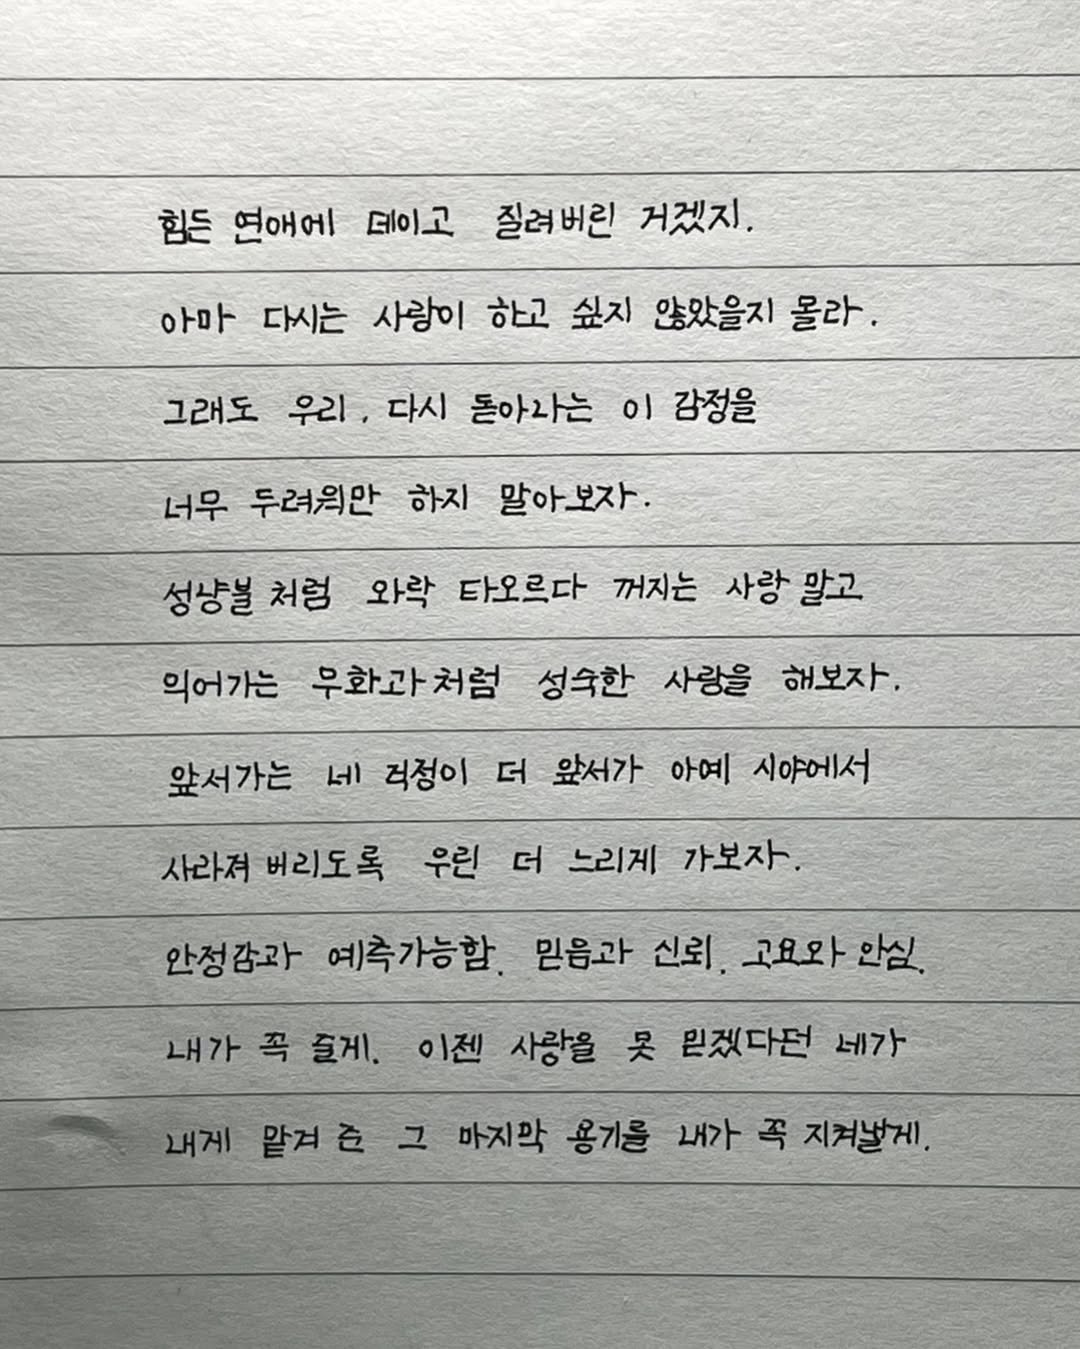 힘든 연애에 데이고 질려버린 거겠지.
아마 다시는 사랑이 하고 싶지 않았을지 몰라.
그래도 우리, 다시 돋아나는 이 감정을
너무 두려워만 하지 말아보자.
성냥불처럼 와락 타오르다 꺼지는 사랑 말고
익어가는 무화과처럼 성숙한 사랑을 해보자.
앞서가는 네 걱정이 더 앞서가 아예 시야에서
사라져 버리도록 우린 더 느리게 가보자.
안정감과 예측가능함, 믿음과 신뢰, 고요와 안심,
내가 꼭 줄게. 이젠 사랑을 못 믿겠다던 네가
내게 맡겨 준 그 마지막 용기를 내가 꼭 지켜낼게.